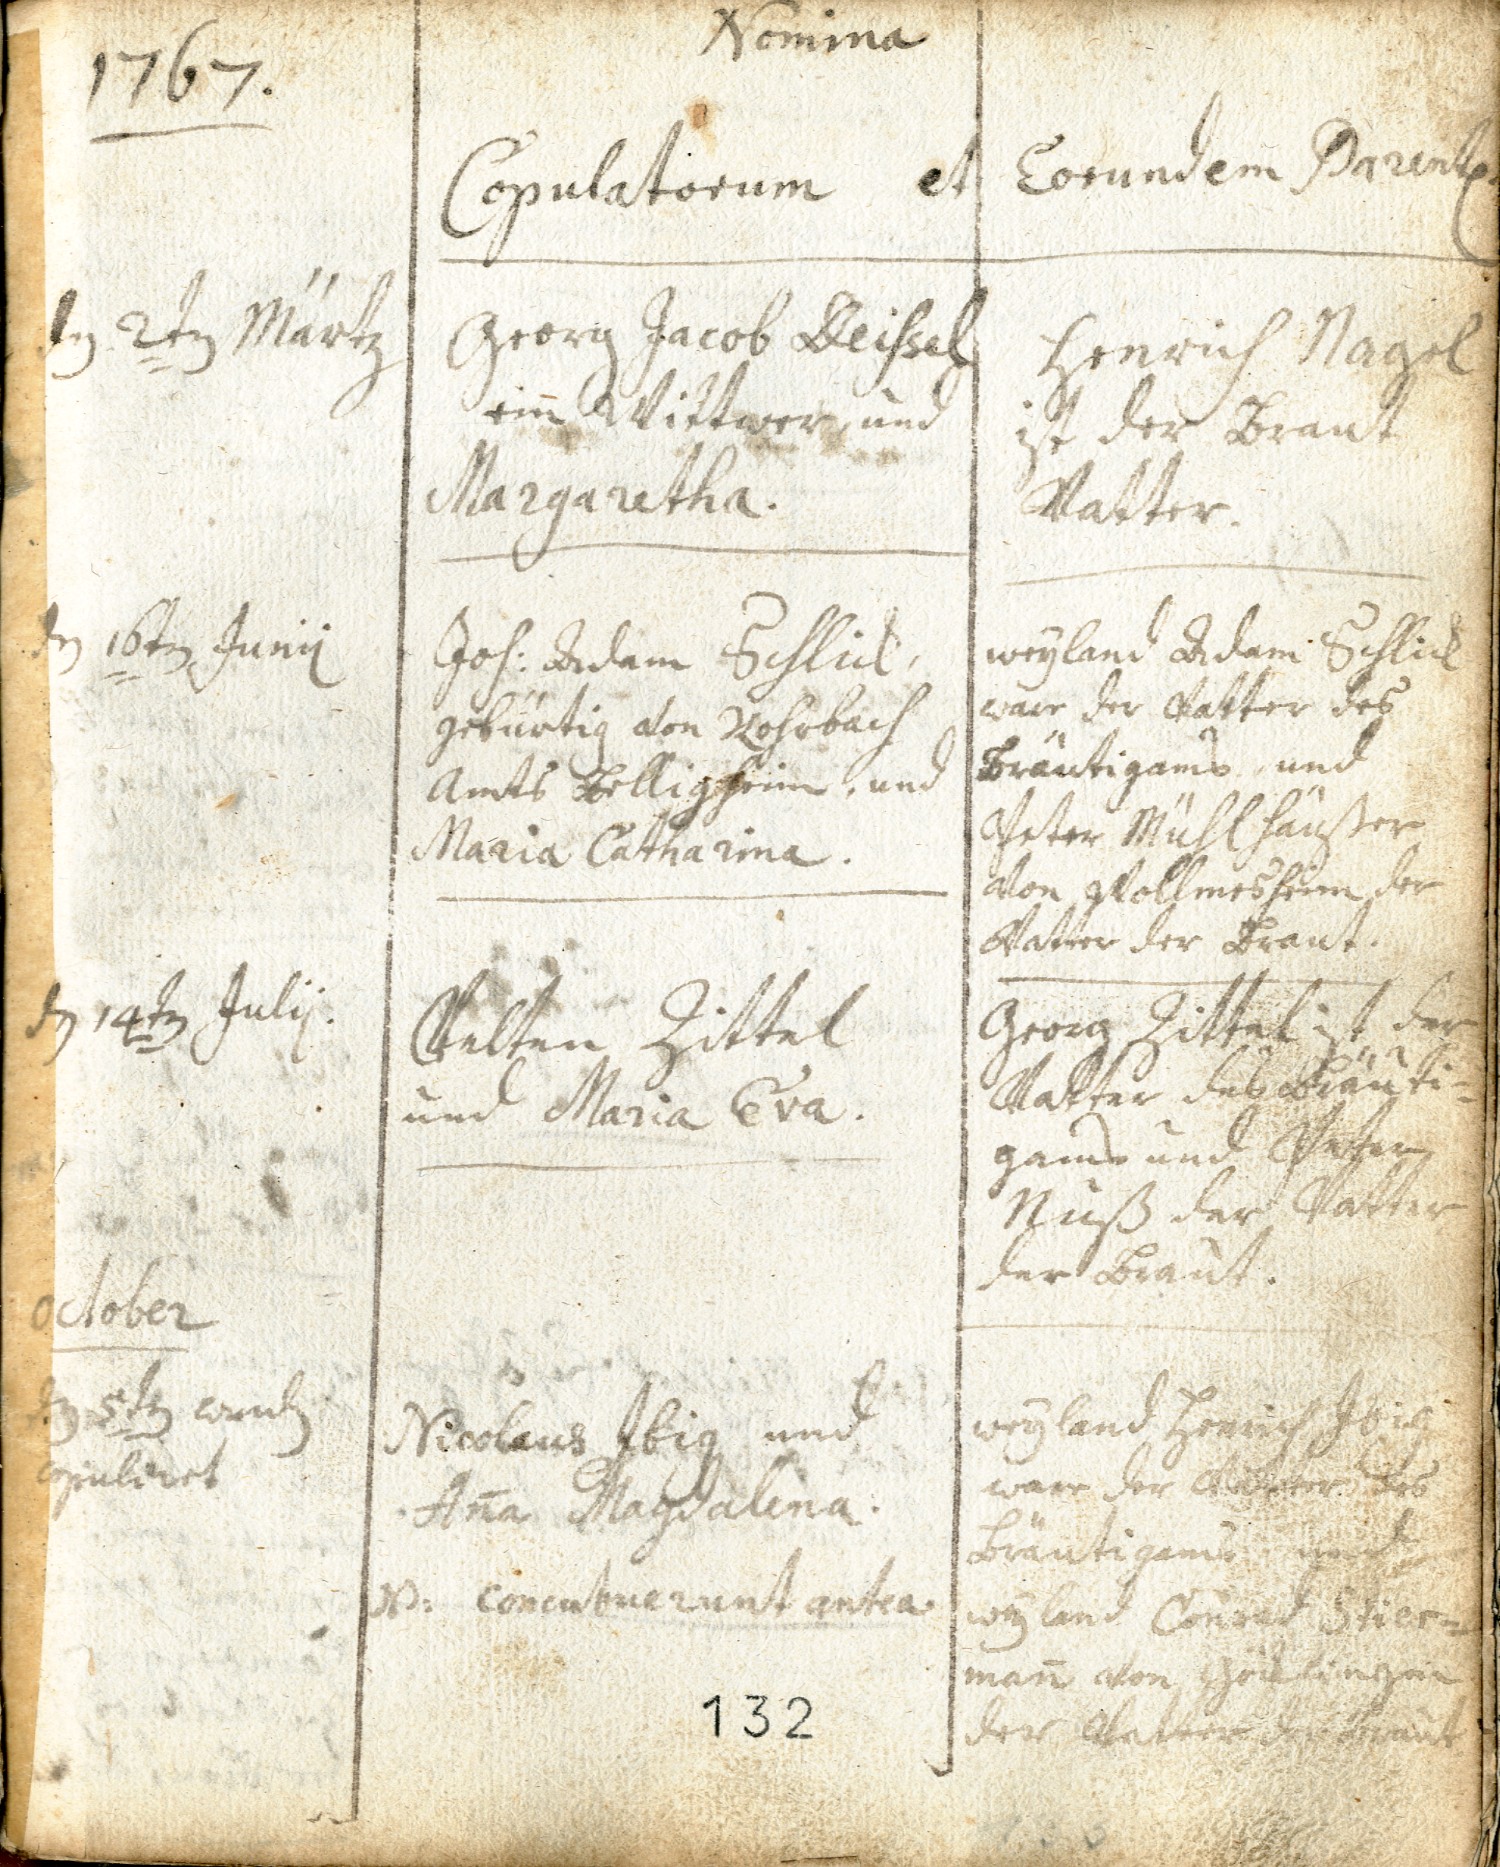 1767.
Nomina
Copulatorum et Eorundem Parent.
den 2ten Märtz
Georg Jacob Beissel
ein Wittwer, und
Margaretha.
Henrich Nagel
ist der Braut
Vatter.
den 16ten Junij
Joh: Adam Schlick,
gebürtig von Rohrbach
Amts Billigheim, und
Maria Catharina.
weyland Adam Schlick
ware der Vatter des
Bräutigams, und
Peter Mühlhäußer
von Wollmesheim der
Vatter der Braut.
den 14ten Julij.
Velten Zittel
und Maria Eva.
Georg Zittel ist der
Vatter des Bräuti-
gams und Peter
Nuß der Vatter
der Braut.
October
den 5ten
copuliret
Nicolaus Ibig und
Aña Magdalena.
N: concubuerunt antea.
weyland Henrich Ibig
ware der Vatter des
Bräutigams und
weyland Conrad Stier-
mañ von
der Vatter der Braut
132